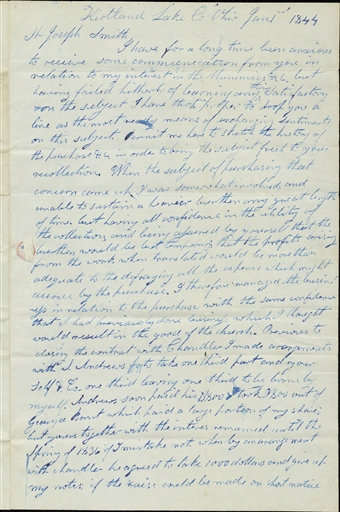 Kirtland Lake Co Ohio Jany 1st 1844
Mr Joseph Smith
I have for a long time been anxious
to receive some communication from you in
relation to my interest in the Mummies &c. but
having failed hitherto of learning any thing satisfactory
upon the subject I have thot proper to drop you a
line as the most ready means of exchanging sentiments
on this subject Permit me here to sketch the history of
the purchase &c. in order to bring the subject fresh to your
recollection. When the subject of purchasing that
concern came up I was somewhat involved, and
unable to sustain a heavier burthen any great length
of time but having all confidence in the utility of
the collection and being assured by yourself that the
burthen would be but temporary that the profits arising
from the work when translated would be more than
adequate to the defraying all the expence which might
accrue by the purchase. I therefore managed the busin
ess in relation to the purchase with the same confidence
that I had previously done business which I thought
would result in the good of the church. Previous to
closing the contract with Chandler I made arrangements
with S. Andrews to take one third part and your
self & Co. one third leaving one third to be borne by
myself. Andrews soon paid his $800 I took $800 out of
Geauga Bank which paid a large portion of my share;
but yours together with the notes remained until the
Spring of 1836 if I mistake not when by an arrangement
with Chandler he agreed to take 1000 dollars and give up
my notes if the raise could be made on short notice